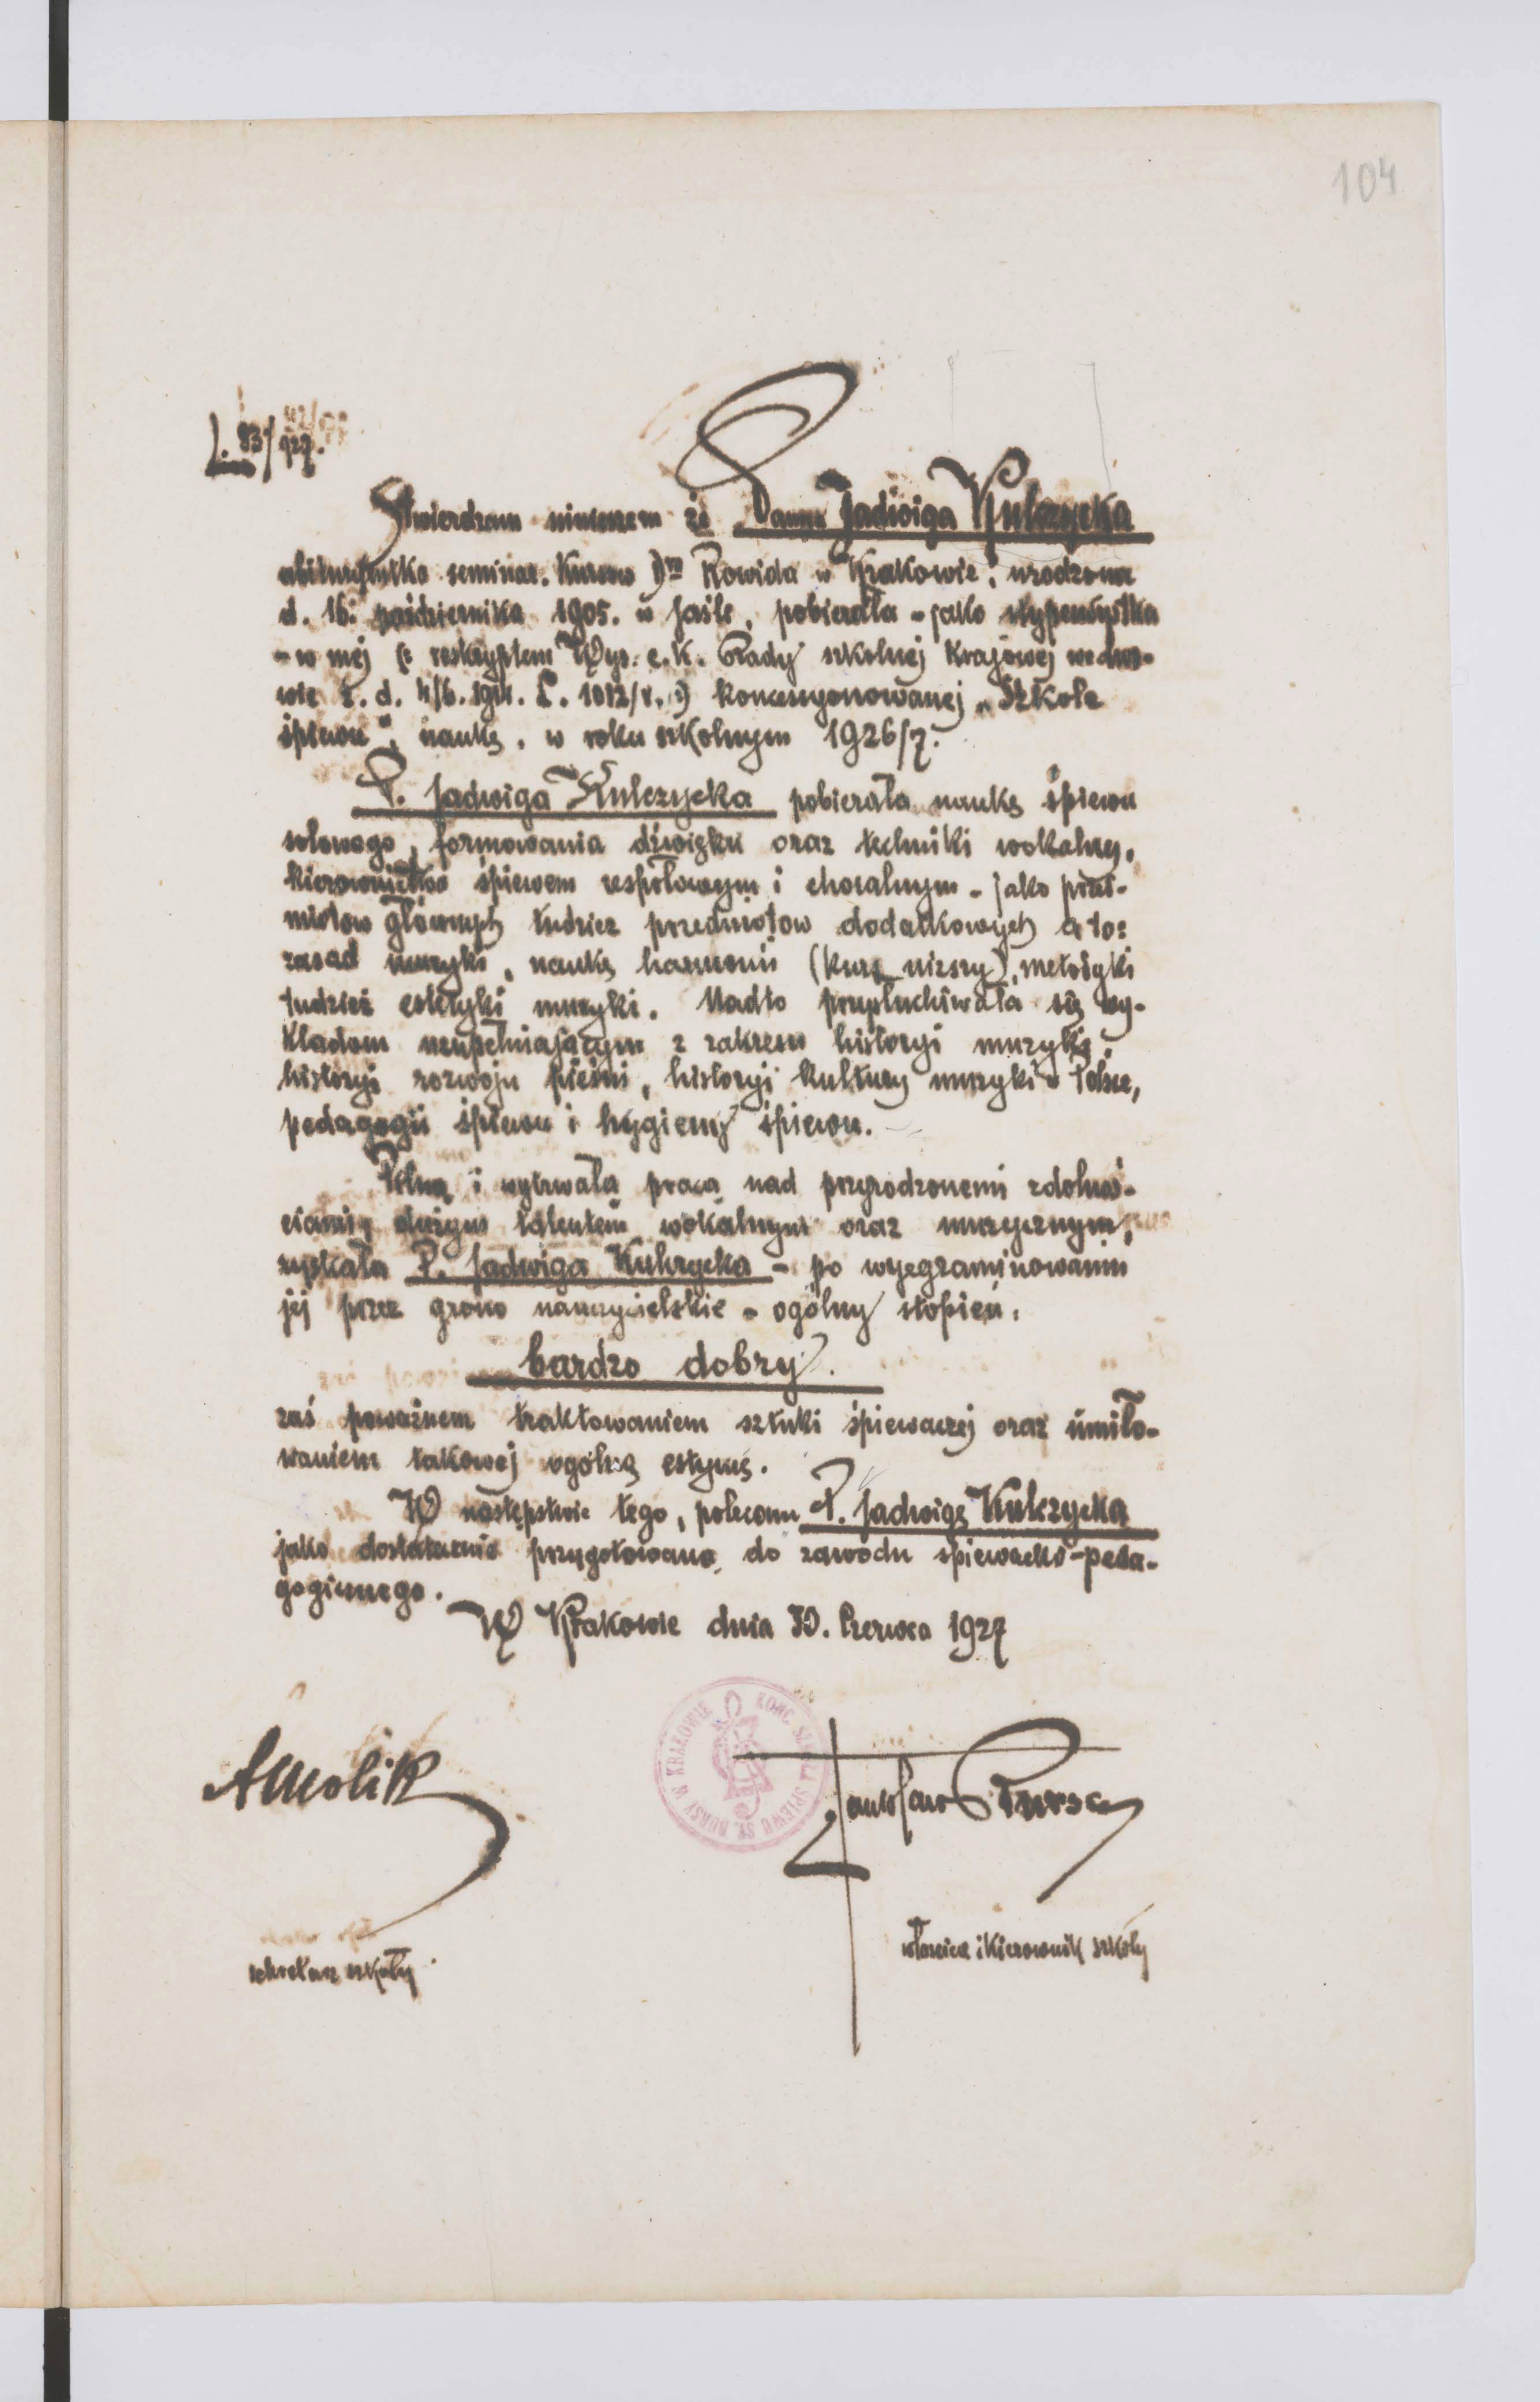 104
L. 83/927.
Stwierdzam niniejszem że Panna Jadwiga Kulczycka
abiturjentka seminar. Kursów Dra Rowida w Krakowie, urodzona
d. 16. października 1905. w Jaśle, pobierała - jako stypendystka
- w mej (: reskryptem Wys. c. k. Rady szkolnej Krajowej we Lwo-
wie z. d. 4/6. 1914. L. 1012/V. :) koncesyonowanej „Szkole
śpiewu", naukę, w roku szkolnym 1926/7.
P. Jadwiga Kulczycka pobierała naukę śpiewu
solowego, formowania dźwięku oraz techniki wokalnej,
kierownictwa śpiewem zespołowym i choralnym - jako przed-
miotów głównych tudzież przedmiotow dodatkowych a to:
zasad muzyki, naukę harmonii (kurs niższy), metodyki
tudzież estetyki muzyki. Nadto przysłuchiwała się wy-
kładom uzupełniającym z zakresu historyi muzyki,
historyi rozwoju pieśni, historyi kultury muzyki w Polsce,
pedagogii śpiewu i hygieny śpiewu.
Pilną i wytrwałą pracą nad przyrodzonemi zdolnoś-
ciami, dużym talentem wokalnym oraz muzycznym,
zyskała P. Jadwiga Kulczycka - po wyegzaminowaniu
jej przez grono nauczycielskie - ogólny stopień:
bardzo dobry.
zaś poważnem traktowaniem sztuki śpiewaczej oraz umiło-
waniem takowej ogólną estymę.
W następstwie tego, polecam P. Jadwigę Kulczycką
jako dostatecznie przygotowaną do zawodu śpiewacko-peda-
gogicznego.
W Krakowie dnia 30. Czerwca 1927
KONC. SZKOŁA ŚPIEWU ST. BURSY W KRAKOWIE
AMolik
Stanisław Bursa
sekretarz szkoły
właściciel i kierownik szkoły